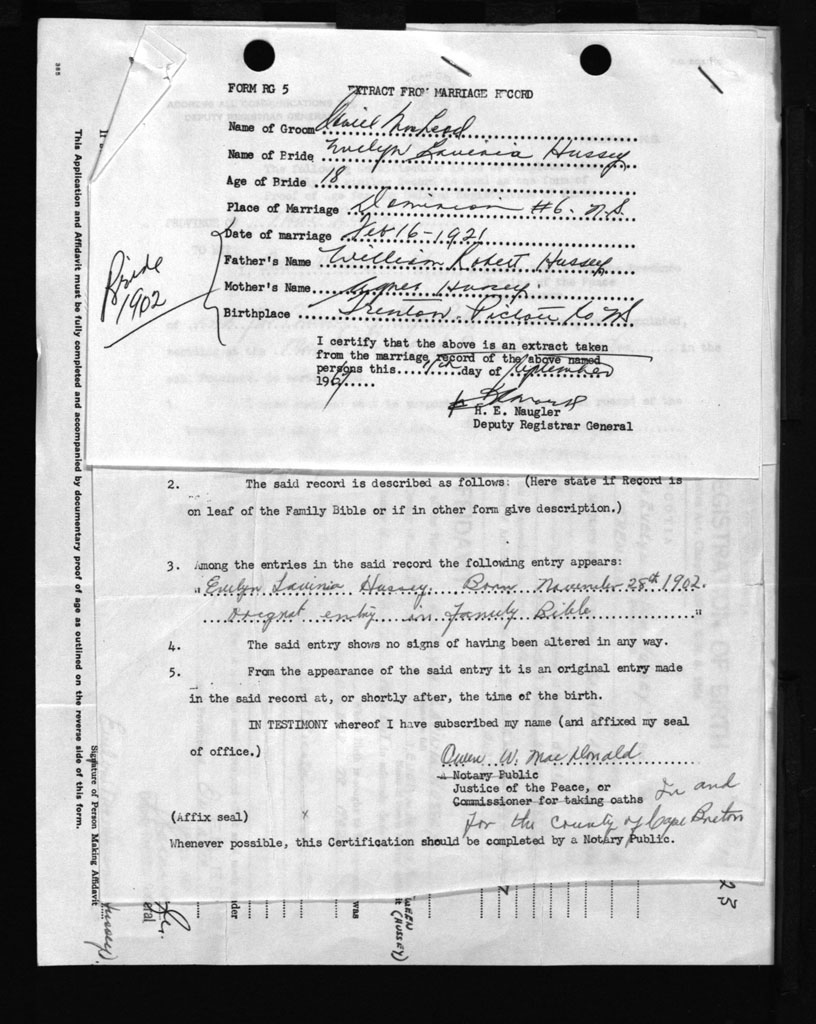 FORM RG 5 EXTRACT FROM MARRIAGE RECORD
Name of Groom
Name of Bride Evelyn Lavinia Hussey
Age of Bride 18
Place of Marriage Dominion #6. N.S.
Date of marriage Feb 16-1921
Father's Name William Robert Hussey
Mother's Name Agnes Hussey
Birthplace Trenton Pictou Co NS
Bride
1902
I certify that the above is an extract taken
from the marriage record of the above named
persons this day of September
196
H. E. Naugler
Deputy Registrar General
2. The said record is described as follows: (Here state if Record is
on leaf of the Family Bible or if in other form give description.)
3. Among the entries in the said record the following entry appears:
"Evelyn Lavinia Hussey. Born November 28th 1902.
Orignal entry in Family Bible"
4. The said entry shows no signs of having been altered in any way.
5. From the appearance of the said entry it is an original entry made
in the said record at, or shortly after, the time of the birth.
IN TESTIMONY whereof I have subscribed my name (and affixed my seal
of office.)
Owen W. MacDonald
A Notary Public
Justice of the Peace, or
Commissioner for taking oaths In and
for the County of Cape Breton
(Affix seal) x
Whenever possible, this Certification should be completed by a Notary Public.
This Application and Affidavit must be fully completed and accompanied by documentary proof of age as outlined on the reverse side of this form.
Signature of Person Making Affidavit
Hussey
was
(HUSSEY)
25